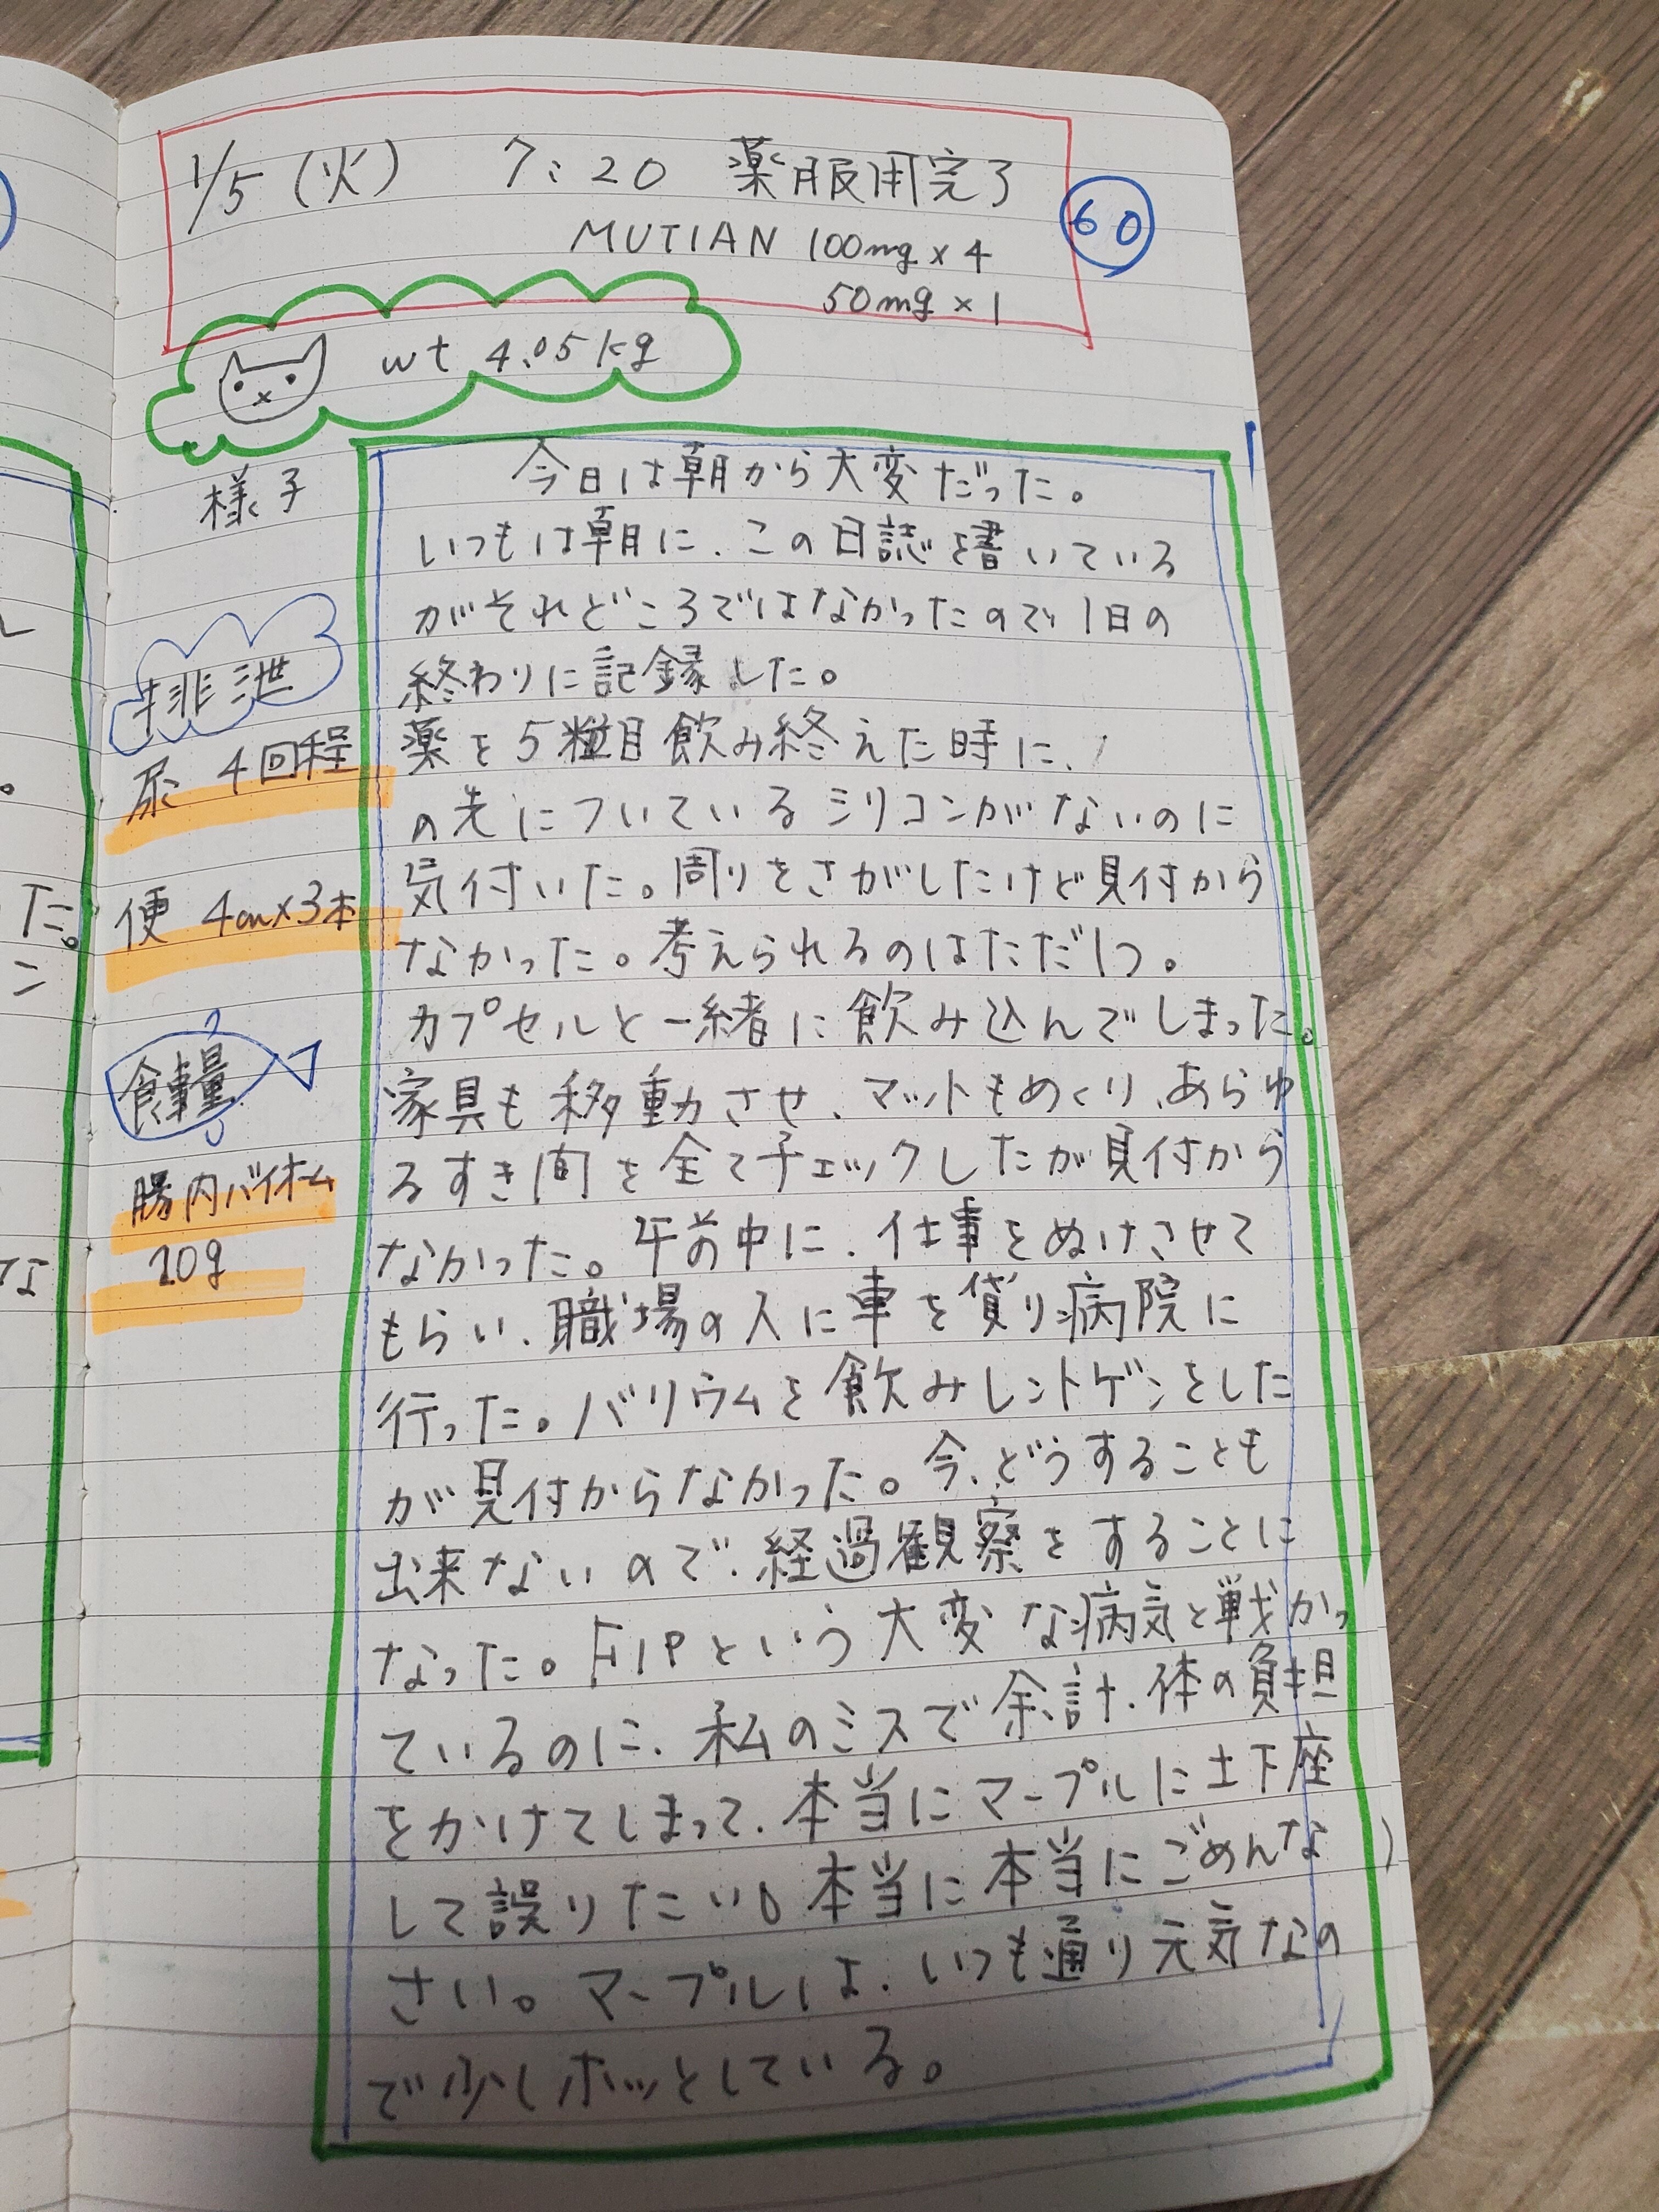 1/5(火) 7:20 薬服用完了
MUTIAN 100mg×4
50mg×1
60
wt 4.05kg
様子
今日は朝から大変だった。
いつもは朝に、この日誌を書いている
がそれどころではなかったので1日の
終わりに記録した。
薬を5粒目飲み終えた時に、
の先についているシリコンがないのに
気付いた。周りをさがしたけど見付から
なかった。考えられるのはただ1つ。
カプセルと一緒に飲み込んでしまった。
家具も移動させ、マットもめくり、あらゆ
るすき間を全てチェックしたが見付から
なかった。午前中に、仕事をぬけさせて
もらい、職場の人に車を貸り病院に
行った。バリウムを飲みレントゲンをした
が見付からなかった。今、どうすることも
出来ないので、経過観察をすることに
なった。FIPという大変な病気と戦かっ
ているのに、私のミスで余計、体の負担
をかけてしまって、本当にマープルに土下座
して誤りたい。本当に本当にごめんな
さい。マープルは、いつも通り元気なの
で少しホッとしている。
排泄
尿 4回程
便 4cm×3本
食事量
腸内バイオーム
20g
た。
こ
な